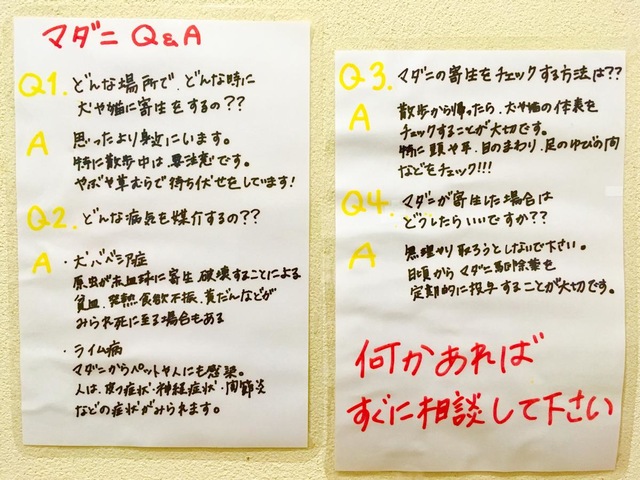 マダニ Q&A
Q1. どんな場所で、どんな時に
犬や猫に寄生をするの??
A 思ったより身近にいます。
特に散歩中は要注意です。
ヤブや草むらで待ち伏せをしています!
Q2. どんな病気を媒介するの??
A ・犬バベシア症
原虫が赤血球に寄生、破壊することによる
貧血、発熱、食欲不振、黄だんなどが
みられ死に至る場合もある
・ライム病
マダニからペットや人にも感染。
人は、皮フ症状・神経症状・関節炎
などの症状がみられます。
Q3. マダニの寄生をチェックする方法は??
A 散歩から帰ったら、犬や猫の体表を
チェックすることが大切です。
特に頭や耳、目のまわり、足のゆびの間
などをチェック!!!
Q4. マダニが寄生した場合は
どうしたらいいですか??
A 無理やり取ろうとしないで下さい。
日頃からマダニ駆除薬を
定期的に投与することが大切です。
何かあれば
すぐに相談して下さい